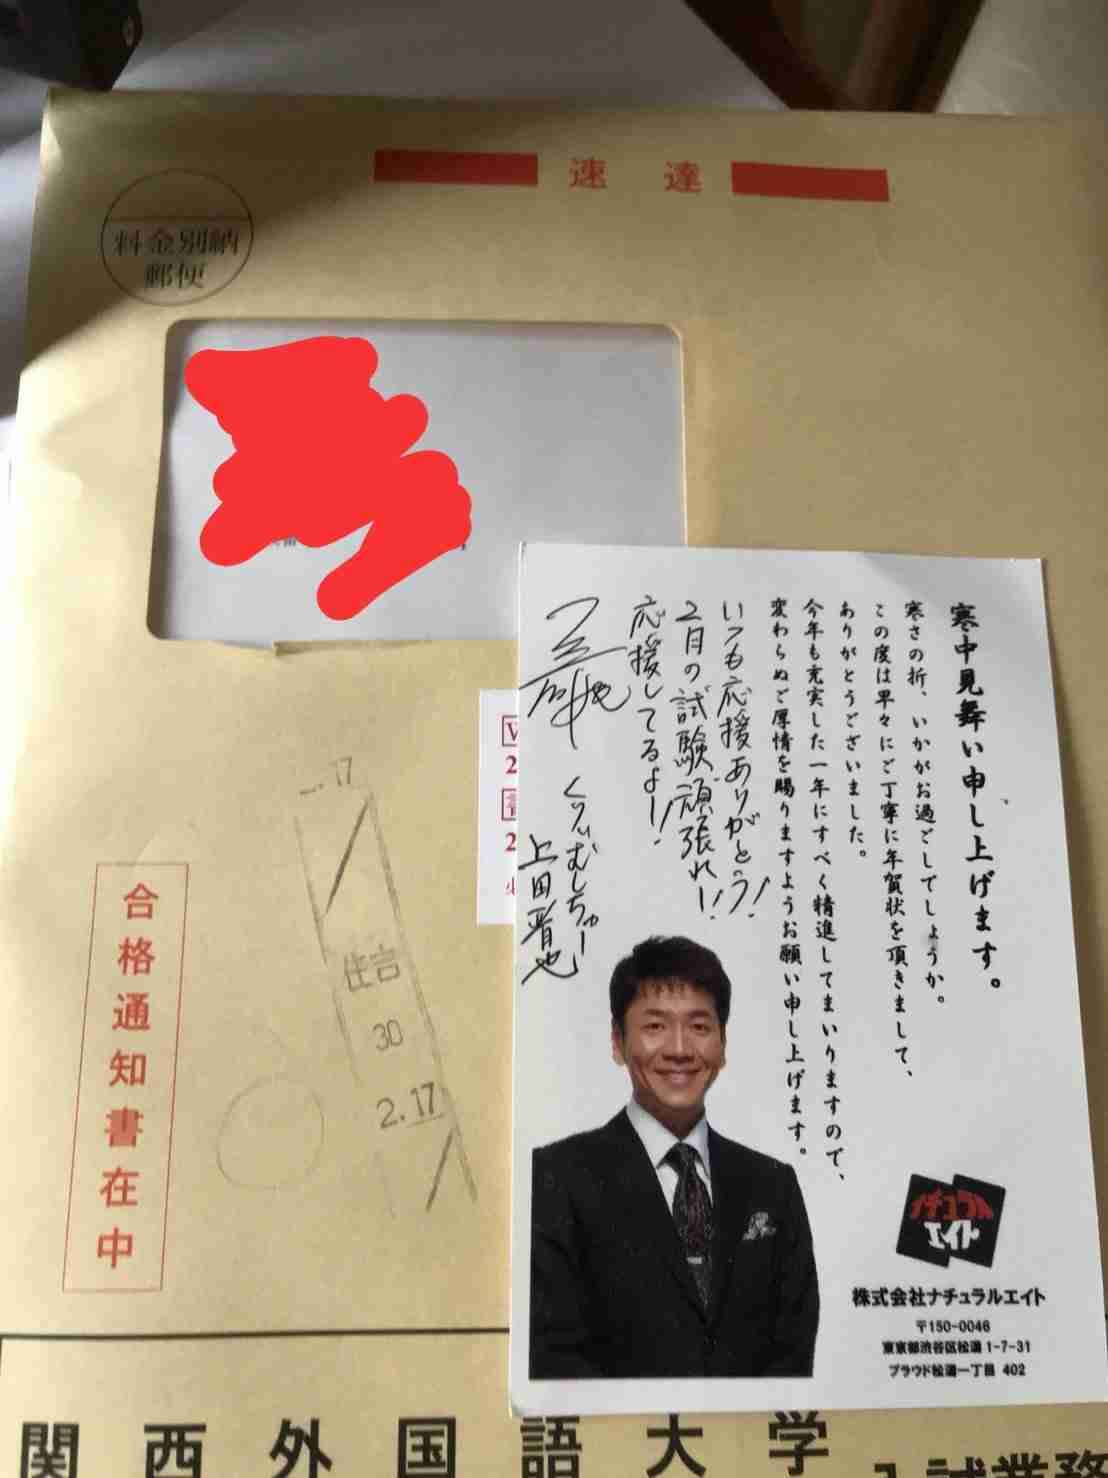 速達
料金別納
郵便
2.17
住吉
30
2.17
合格通知書在中
関西外国語大学
寒中見舞い申し上げます。
寒さの折、いかがお過ごしでしょうか。
この度は早々にご丁寧に年賀状を頂きまして、
ありがとうございました。
今年も充実した一年にすべく精進してまいりますので、
変わらぬご厚情を賜りますようお願い申し上げます。
いつも応援ありがとう!
2月の試験頑張れー!
応援してるよー!
くりぃむしちゅー
上田晋也
ナチュラル
エイト
株式会社ナチュラルエイト
〒150-0046
東京都渋谷区松濤1-7-31
プラウド松濤一丁目 402